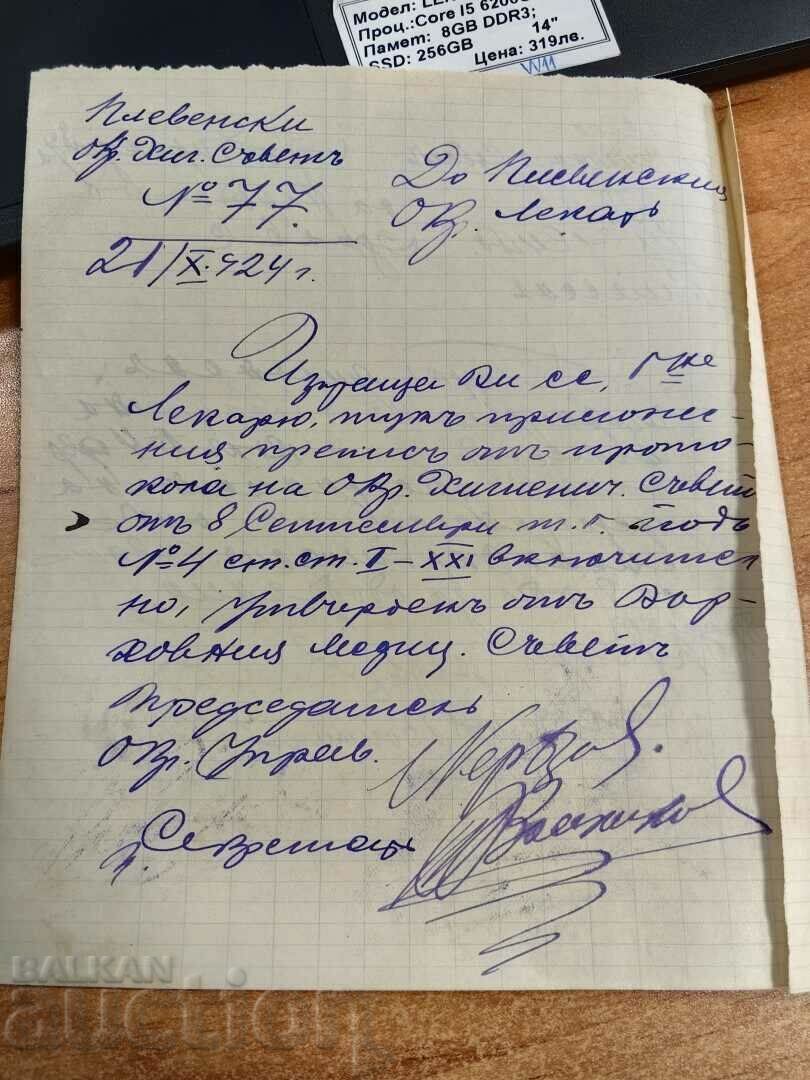 Модел: LEN
Проц.:Core I5 6200
Памет: 8GB DDR3;
SSD: 256GB 14"
Цена: 319лв.
Плевенски
Окр. Хиг. Съветъ
№ 77
21/X.924 г.
До Плевенския
Окр. Лекарь
Изпраща Ви се, г-не
Лекарю, тукъ приложе-
ния преписъ отъ прото-
кола на Окр. Хигиенич. Съветъ
отъ 8 Септемврий т. г. подъ
№ 4 ст. ст. I – XXI включител
но, утвърденъ отъ Вър-
ховния Медиц. Съветъ
Председатель
Окр. Управ.
Секретарь
BALKAN
auction